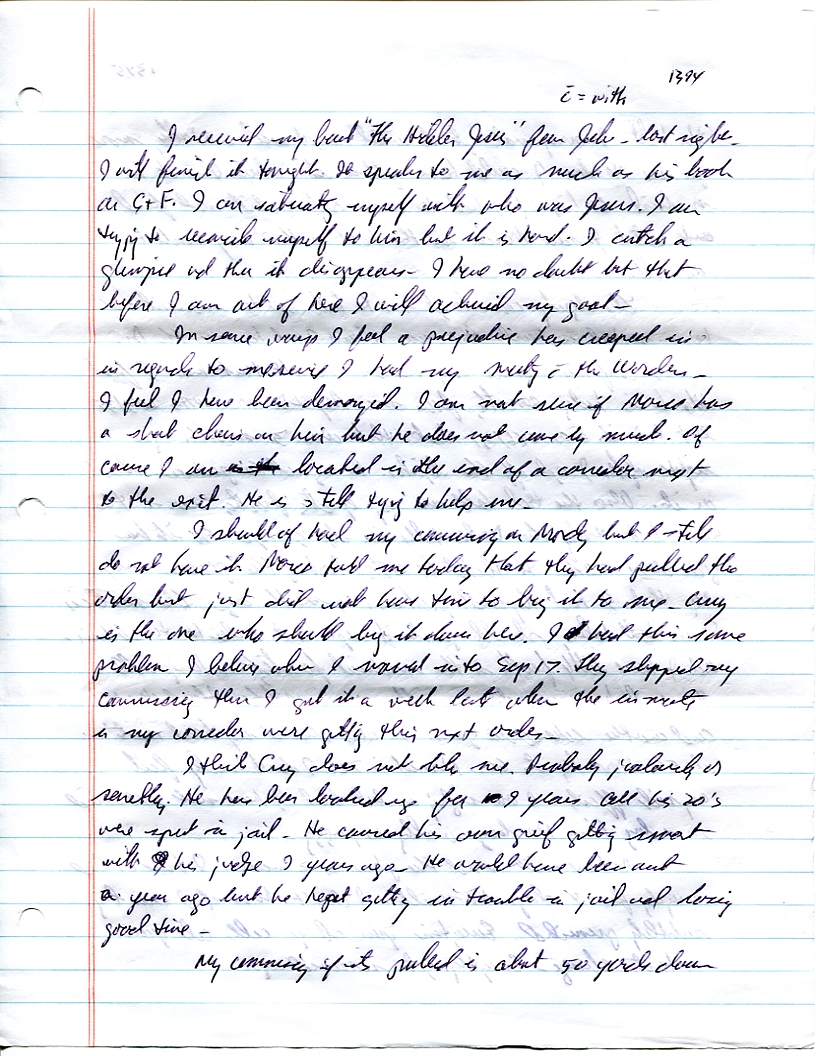 1394
c̄ = with
I received my book "The Hidden Jesus" from John - last night -
I will finish it tonight. It speaks to me as much as his book
on G+F. I can saturate myself with who was Jesus. I am
trying to reconcile myself to him but it is hard. I catch a
glimpse and then it disappears - I have no doubt but that
before I am out of here I will achieve my goal -
In some ways I feel a prejudice has creeped in
in regards to me since I had my meeting c̄ the Warden -
I feel I have been demonized. I am not sure if has
a short chain on him but he does not come by much. Of
course I am located in the end of a corridor next
to the exit. He is still trying to help me -
I should of had my commissary on Monday but I still
do not have it. told me today that they had pulled the
order but just did not have time to bring it to me -
is the one who should bring it down here. I had this same
problem I believe when I moved into Sep 17. They skipped my
commissary then I got it a week late when the inmates
in my corridor were getting this next order -
I think does not like me. Probably jealousy or
something. He has been locked up for 9 years all his 20's
were spent in jail - He caused his own grief getting smart
with his judge 9 years ago - He would have been out
a year ago but he kept getting in trouble in jail and losing
good time -
My commissary if its pulled is about 50 yards down